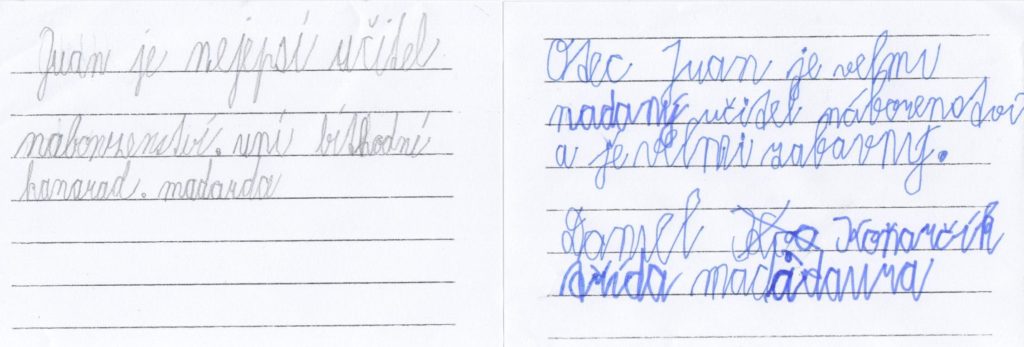 Juan je nejepsí učitel
nábonzenství. umí být hodní
kamarad. madarda
Otec Juan je velmi
nadaný učitel náboženství
a je velmi zabavný.
Daniel Kovarčík
třída